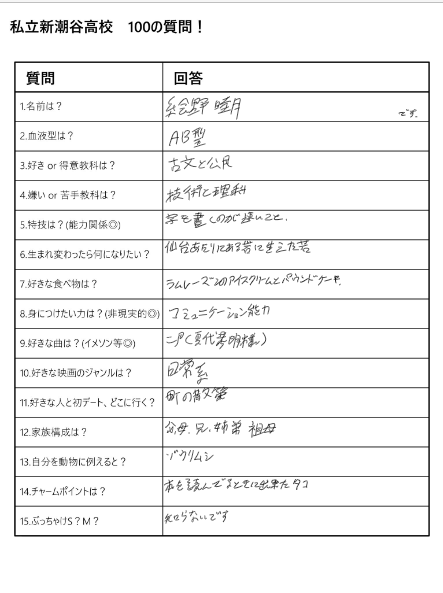 私立新潮谷高校　100の質問！
質問 回答
1.名前は？ 絵野 睦月 です。
2.血液型は？ AB型
3.好き or 得意教科は？ 古文と公民
4.嫌い or 苦手教科は？ 技術と理科
5.特技は？(能力関係◎) 字を書くのが速いこと。
6.生まれ変わったら何になりたい？ 仙台あたりにある岩に生えた苔
7.好きな食べ物は？ ラムレーズンのアイスクリームとパウンドケーキ
8.身につけたい力は？(非現実的◎) コミュニケーション能力
9.好きな曲は？(イメソン等◎) ニア(夏代孝明様)
10.好きな映画のジャンルは？ 日常系
11.好きな人と初デート、どこに行く？ 町の散策
12.家族構成は？ 父、母、兄、姉、弟 祖母
13.自分を動物に例えると？ ゾウリムシ
14.チャームポイントは？ 本を読んでるときに出来たタコ
15.ぶっちゃけS？M？ 知らないです